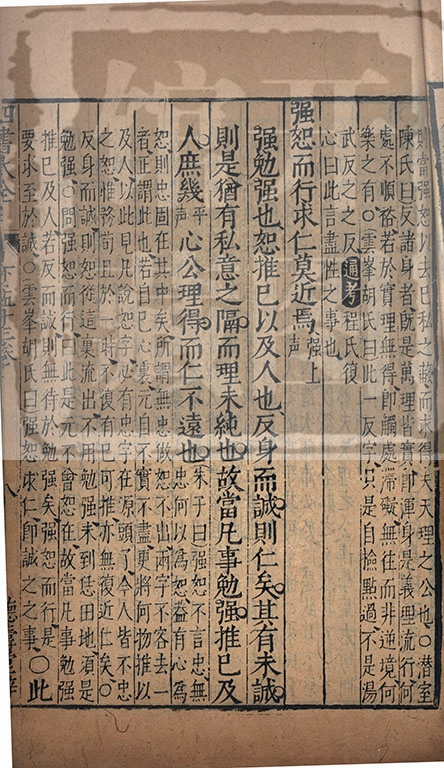 則當強恕以去己私之蔽而求得夫天理之公也○潛室
陳氏曰反諸身者旣是萬理皆實卽渾身是義理流行何
處不順裕若於實理無得卽觸處滯礙無往而非逆境何
樂之有○雲峯胡氏曰此一反字只是自檢點過不是湯
武反之之反通考程氏復
心曰此言盡性之事也
强恕而行求仁莫近焉强上
聲
强勉强也恕推己以及人也反身而誠則仁矣其有未誠
則是猶有私意之隔而理未純也故當凡事勉强推己及
人庶幾平
聲心公理得而仁不遠也朱子曰强恕不言忠無
忠何以爲恕蓋有心爲
恕則忠固在其中矣所謂無忠做恕不出兩字不容去一
者正謂此也若自己心裏元自不實不盡更將何物推以
及人以此早凡說恕字必有忠字在源頭了今人皆不忠
之恕雖務苟且於一時不復有已可推亦無復近仁矣○
反身而誠則恕從這裏流出不用勉强未到恁田地須是
勉强○問强恕而行曰此是元不會恕在故當凡事勉强
推己及人若反而誠則無待於勉强矣强恕而行是
要求至於誠○雲峯胡氏曰强恕求仁卽誠之之事○此
四書大全
下孟十三卷
八